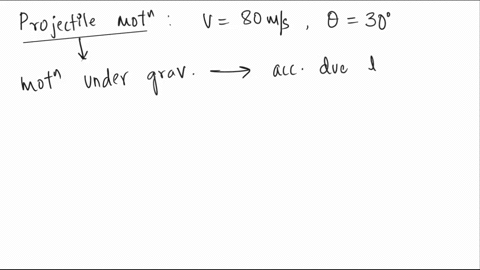 Projectile motⁿ : V = 80 m/s , θ = 30°
motⁿ under grav. → acc. due